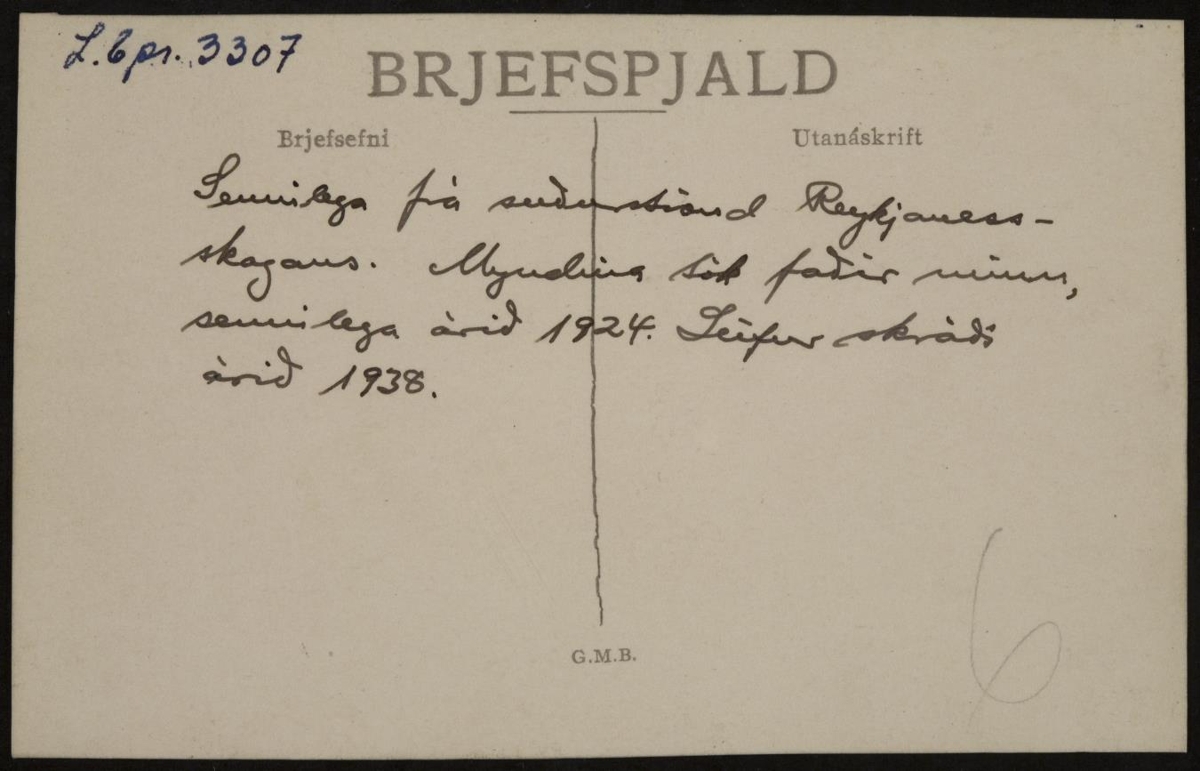 L.6pr. 3307
BRJEFSPJALD
Brjefsefni
Utanáskrift
Sennilega frá suðurströnd Reykjaness-
skagans. Myndina tók faðir minn,
sennilega árið 1924. Leifur skráði
árið 1938.
G.M.B.
6